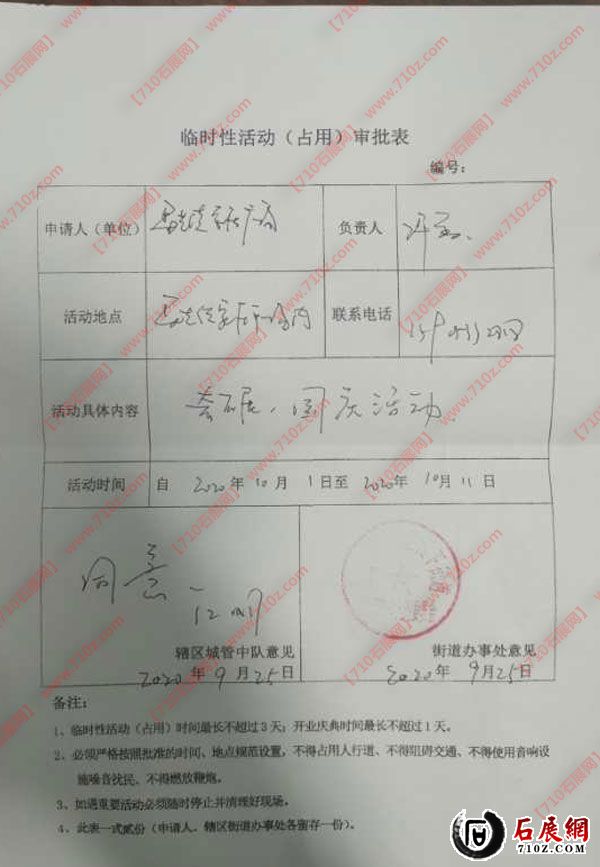 临时性活动（占用）审批表
编号：
申请人（单位）
负责人
活动地点
联系电话
活动具体内容 国庆活动
活动时间 自 2020年10月1日至2020年10月11日
同意
辖区城管中队意见 街道办事处意见
2020年9月25日 2020年9月25日
备注：
1、临时性活动（占用）时间最长不超过3天；开业庆典时间最长不超过1天。
2、必须严格按照批准的时间、地点规范设置，不得占用人行道、不得阻碍交通、不得使用音响设
施噪音扰民、不得燃放鞭炮。
3、如遇重要活动必须随时停止并清理好现场。
4、此表一式贰份（申请人、辖区街道办事处各留存一份）。
【710石展网】www.710z.com
石展网
710Z.COM